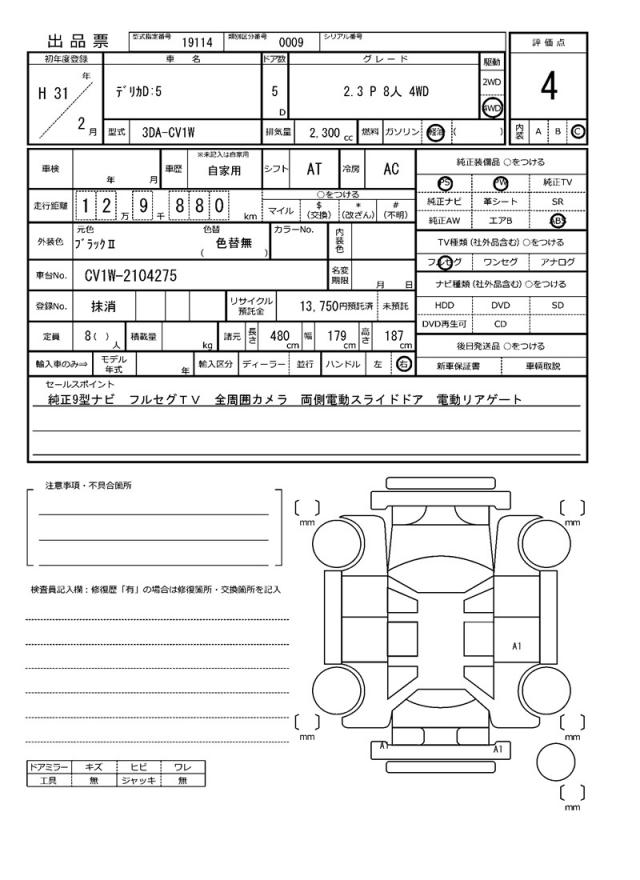 出品票 型式指定番号 19114 類別区分番号 0009 シリアル番号
初年度登録 車名 ドア数 グレード 駆動 評価点
H 31 年 2 月 デリカD:5 5 D 2.3 P 8人 4WD 2WD 4WD 4
型式 3DA-CV1W 排気量 2,300 cc 燃料 ガソリン 軽油 ( ) 内装 A B C
車検 年 月 車歴 ※未記入は自家用 自家用 シフト AT 冷房 AC 純正装備品 ○をつける
PS PW 純正TV
走行距離 12万9千880 km ○をつける 純正ナビ 革シート SR
マイル $(交換) *(改ざん) #(不明) 純正AW エアB ABS
外装色 元色 ブラックⅡ 色替 ( 色替無 ) カラーNo. 内装色 TV種類 (社外品含む) ○をつける
フルセグ ワンセグ アナログ
車台No. CV1W-2104275 名変期限 月 日 ナビ種類 (社外品含む) ○をつける
登録No. 抹消 リサイクル預託金 13,750円預託済 未預託 HDD DVD SD
DVD再生可 CD
定員 8( )人 積載量 kg 諸元 長さ 480 cm 幅 179 cm 高さ 187 cm 後日発送品 ○をつける
輸入車のみ⇒ モデル年式 年 輸入区分 ディーラー 並行 ハンドル 左 右 新車保証書 車輌取説
セールスポイント
純正9型ナビ フルセグTV 全周囲カメラ 両側電動スライドドア 電動リアゲート
注意事項・不具合箇所
mm mm
検査員記入欄:修復歴「有」の場合は修復箇所・交換箇所を記入
A1
mm mm
A1 A1
ドアミラー キズ ヒビ ワレ
工具 無 ジャッキ 無
mm